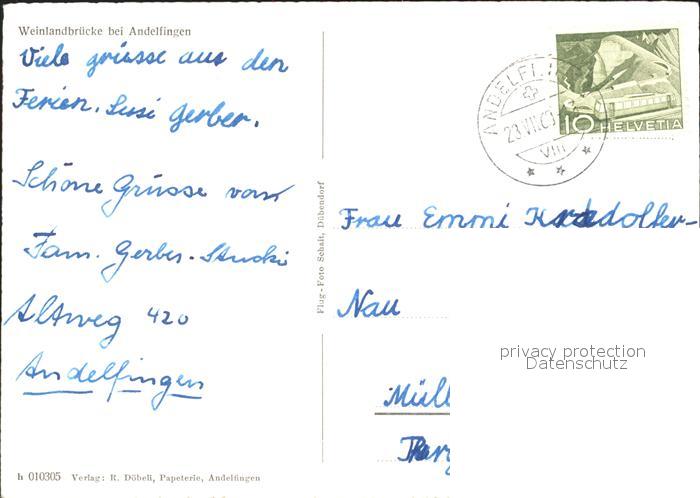 Weinlandbrücke bei Andelfingen
Viele grüsse aus den
Ferien. Susi Gerber.
Schöne Grüsse von
Fam. Gerber-Stucki
Altweg 420
Andelfingen
h 010305 Verlag: R. Döbeli, Papeterie, Andelfingen
Flug-Foto Schalt, Dübendorf
23.VII.
VIII
10 HELVETIA
Frau Emmi
Nau
privacy protection
Datenschutz
Müll